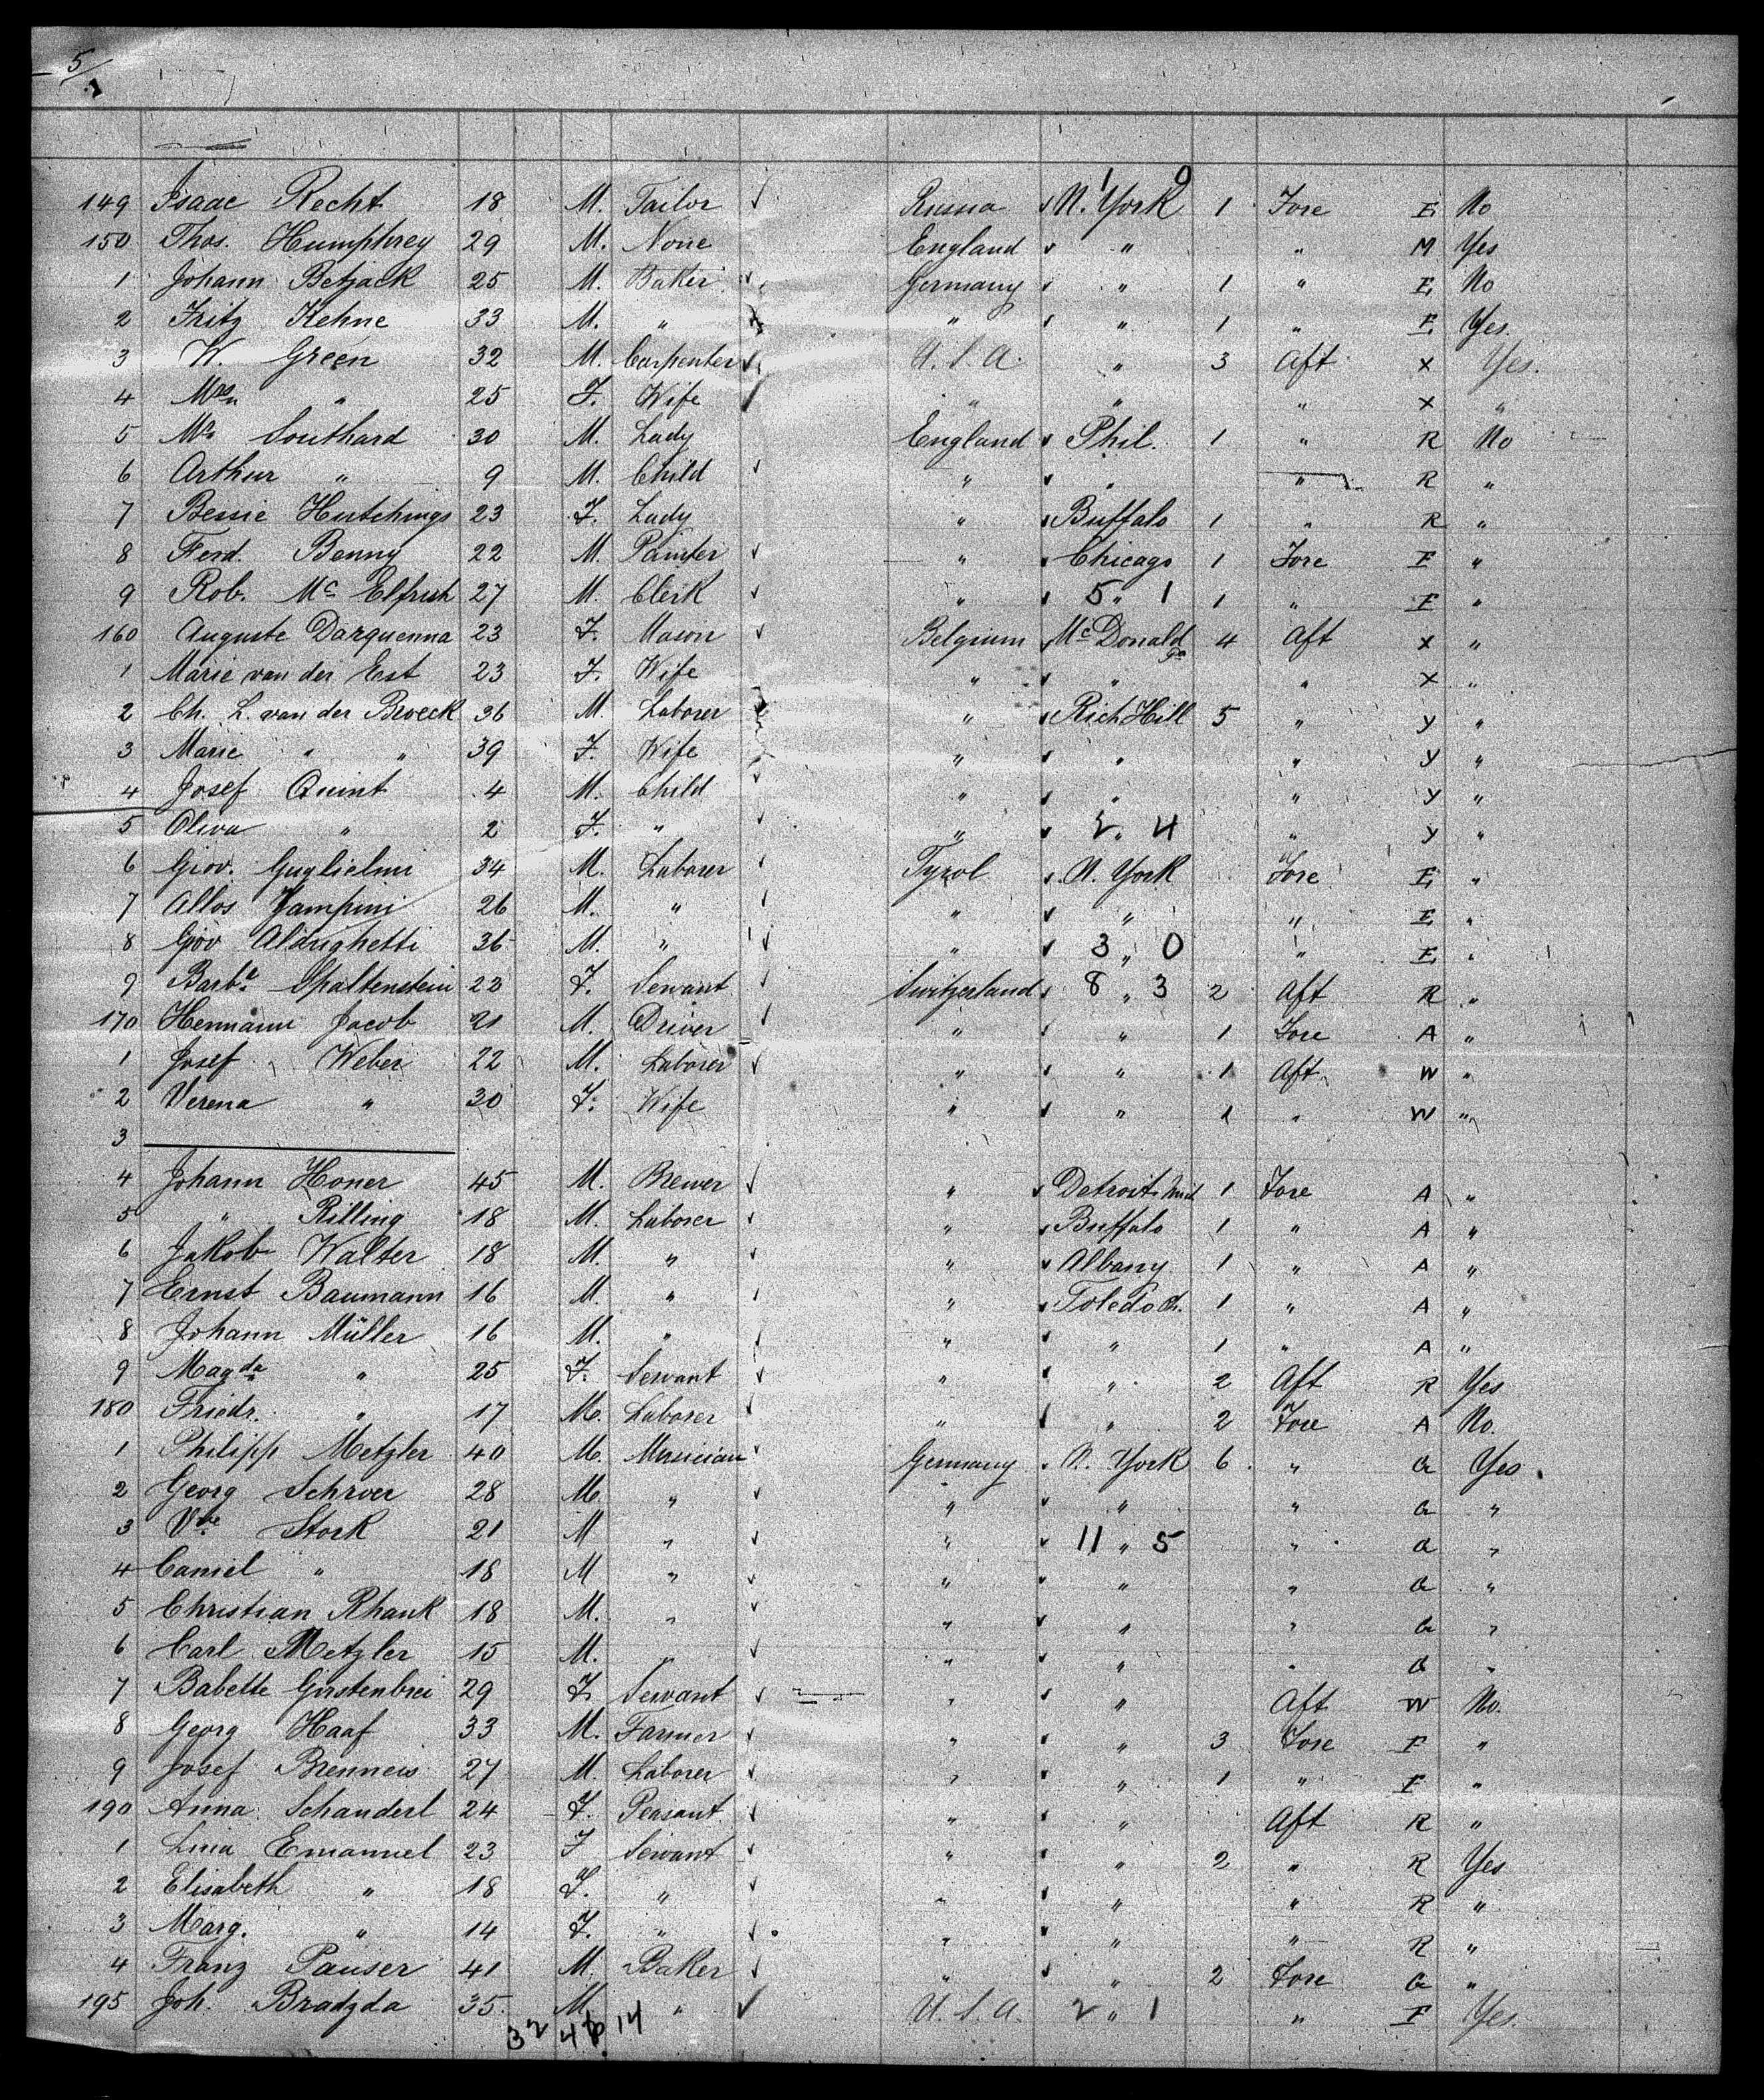 5/1
149 Isaac Recht 18 M. Tailor Russia N. York 1 Fore E No
150 Thos. Humphrey 29 M. None England " " M Yes
1 Johann Betjack 25 M. Baker Germany " 1 " E No
2 Fritz Kehne 33 M. " " " 1 " E Yes.
3 W. Green 32 M. Carpenter U.S.A. " 3 Aft X Yes.
4 Mrs " 25 F. Wife " " " X "
5 Mr Southard 30 M. Lady England Phil. 1 " R No
6 Arthur " 9 M. Child " " " R "
7 Bessie Hutchings 23 F. Lady " Buffalo 1 " R "
8 Ferd. Benny 22 M. Painter " Chicago 1 Fore E "
9 Rob. Mc Elfrish 27 M. Clerk " 5 " 1 1 " E "
160 Auguste Darquenna 23 F. Mason Belgium Mc Donald Pa 4 Aft X "
1 Marie van der Est 23 F. Wife " " " X "
2 Ch. L. van der Broeck 36 M. Laborer " Rich Hill 5 " Y "
3 Marie " " 39 F. Wife " " " Y "
4 Josef Quint 4 M. Child " " " Y "
5 Oliva " 2 F. " " 2 " 4 " Y "
6 Giov. Guglielmi 34 M. Laborer Tyrol N. York Fore E "
7 Allos Zampini 26 M. " " " " E "
8 Giov Aldrighetti 36 M. " " 3 " 0 " E "
9 Barba. Spaltenstein 23 F. Servant Switzerland 8 " 3 2 Aft R "
170 Hermann Jacob 21 M. Driver " " 1 Fore A "
1 Josef Weber 22 M. Laborer " " 1 Aft W "
2 Verena " 30 F. Wife " " 1 " W "
3
4 Johann Honer 45 M. Brewer " Detroit Mich 1 Fore A "
5 " Rilling 18 M. Laborer " Buffalo 1 " A "
6 Jakob Walter 18 M. " " Albany 1 " A "
7 Ernst Baumann 16 M. " " Toledo O. 1 " A "
8 Johann Müller 16 M. " " " 1 " A "
9 Magda " 25 F. Servant " " 2 Aft R Yes
180 Friedr. " 17 M. Laborer " " 2 Fore A No.
1 Philipp Metzler 40 M. Musician Germany N. York 6 " G Yes.
2 Georg Schroer 28 M. " " " " G "
3 Stork 21 M " " 11 " 5 " G "
4 Caniel " 18 M " " " " G "
5 Christian Rhank 18 M. " " " " G "
6 Carl Metzler 15 M. " " " " G "
7 Babette Girstenbrei 29 F. Servant " " Aft W No.
8 Georg Haaf 33 M. Farmer " " 3 Fore E "
9 Josef Brenneis 27 M. Laborer " " 1 " E "
190 Anna Schanderl 24 F. Peasant " " Aft R "
1 Lina Emanuel 23 F Servant " " 2 " R Yes
2 Elisabeth " 18 F. " " " " R "
3 Marg. " 14 F. " " " " R "
4 Franz Pauser 41 M. Baker " " 2 Fore G "
195 Joh. Bradzda 35 M " U.S.A. 2 " 1 " E Yes.
32 14